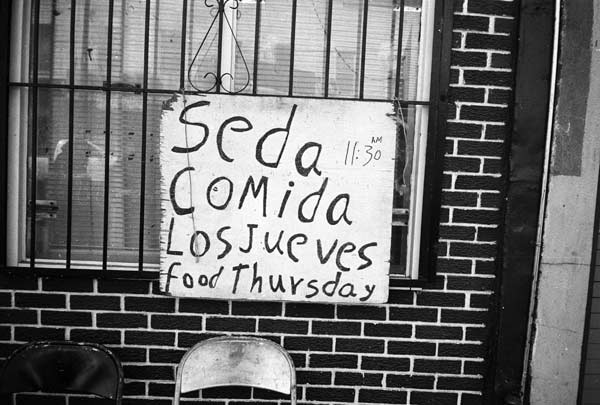 Seda
11:30 AM
COMida
Los Jueves
food Thursday